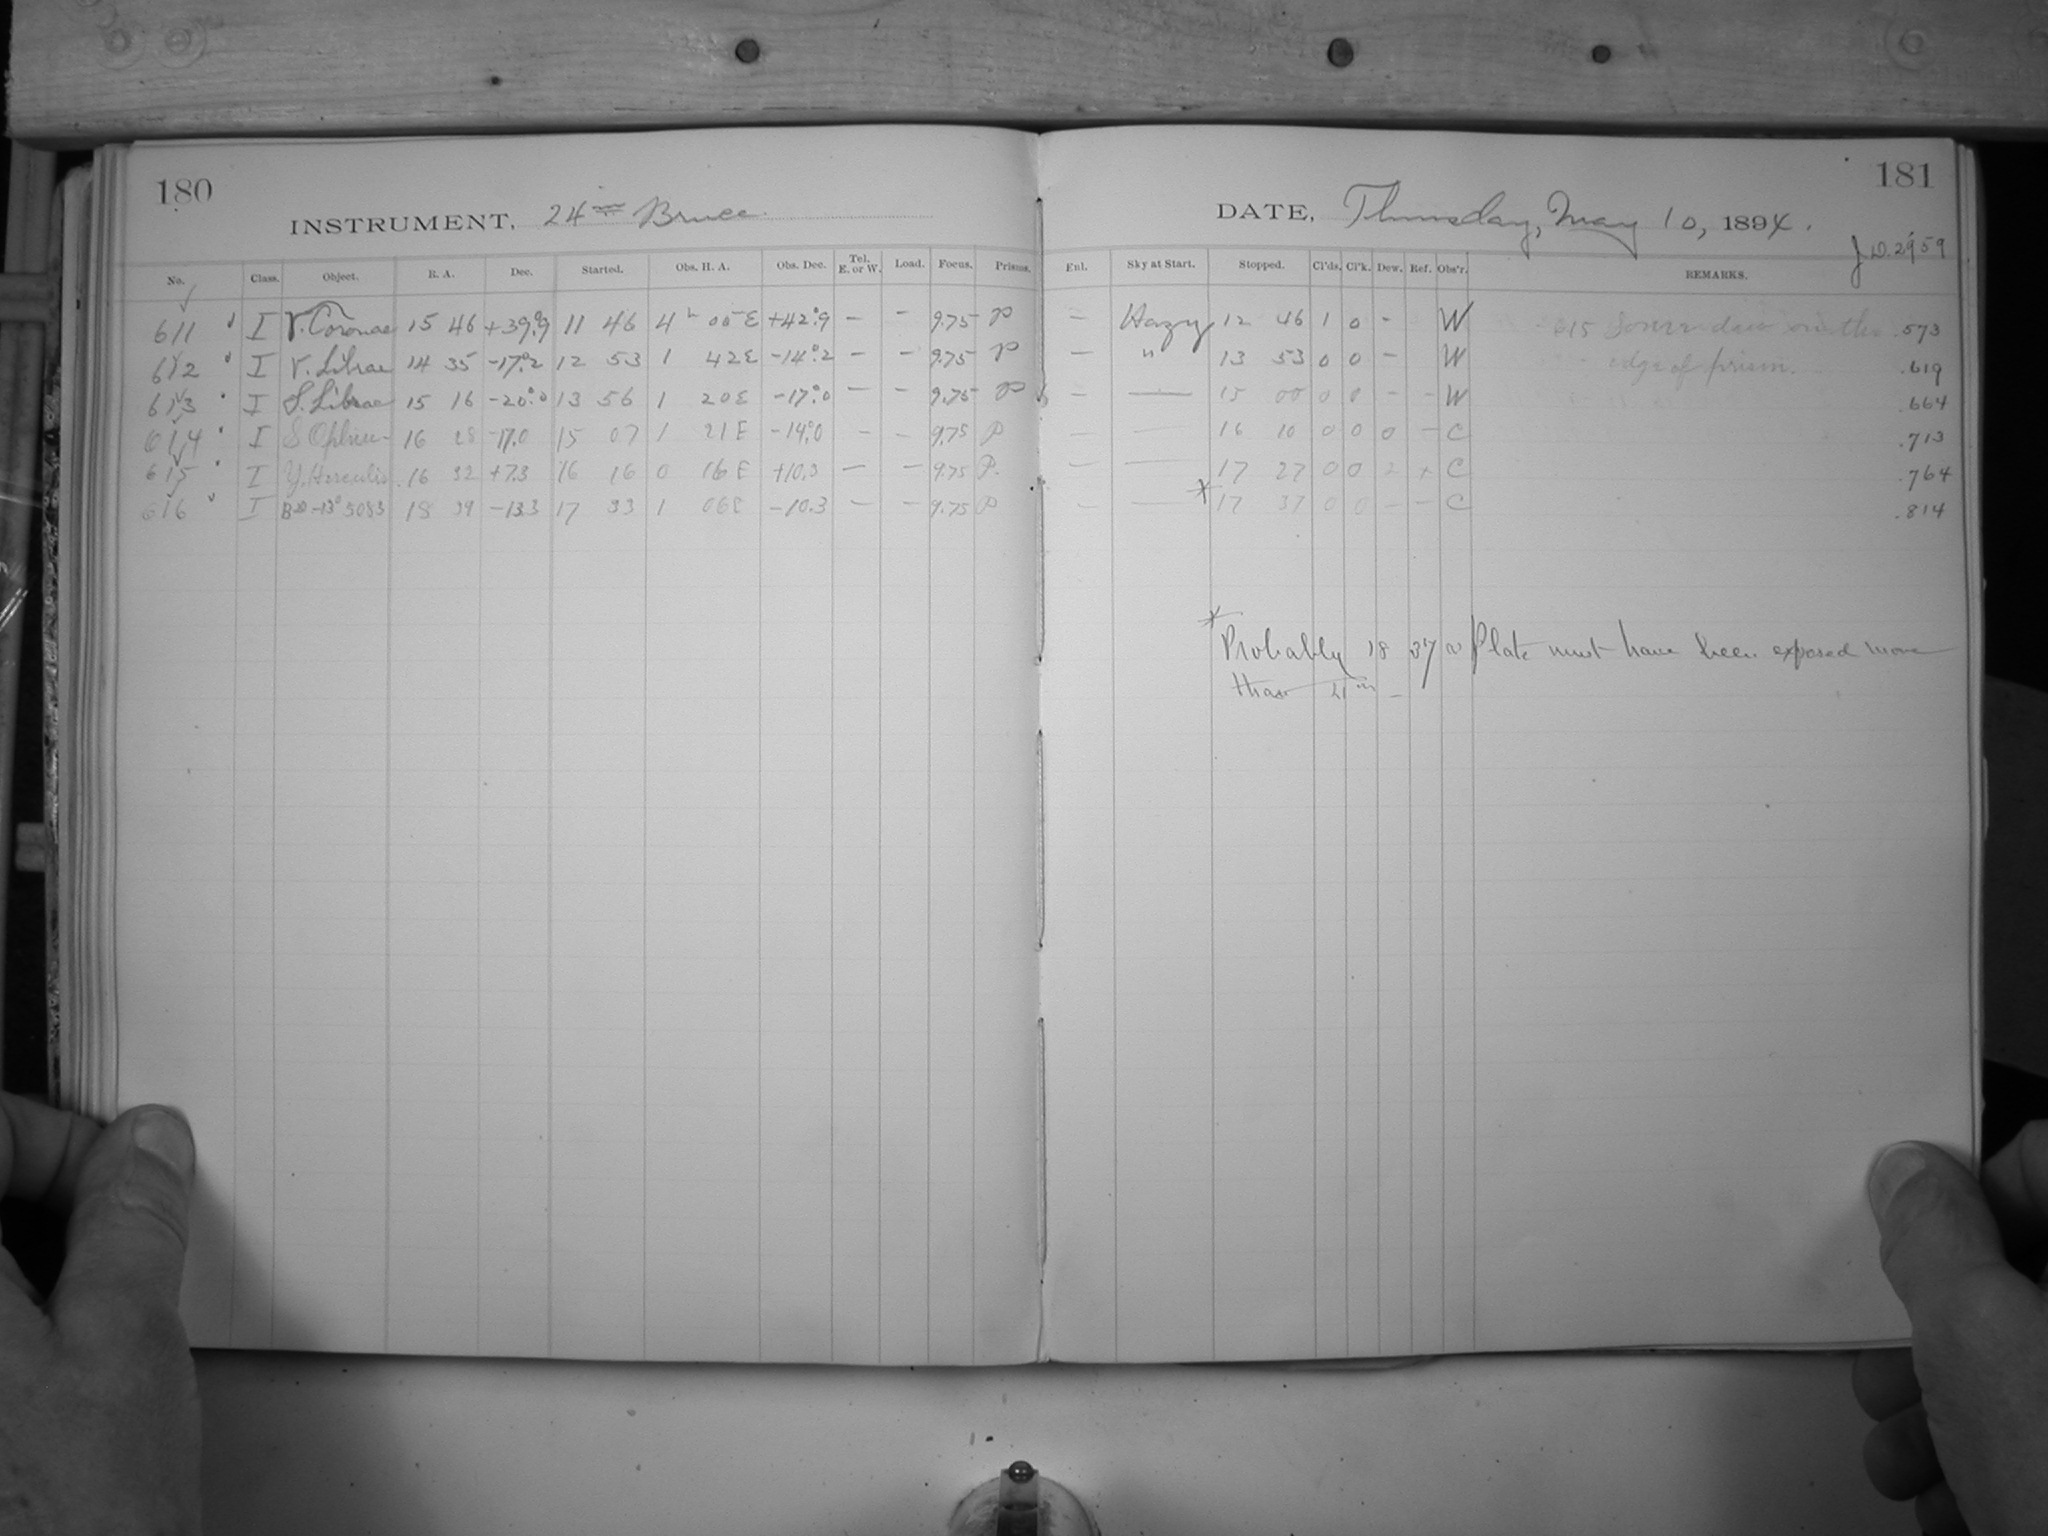 180
INSTRUMENT, 24 in Bruce.
No. Class. Object. R. A. Dec. Started. Obs. H. A. Obs. Dec. Tel. E. or W. Load. Focus. Prisms.
611 I V. Coronae 15 46 +39.9 11 46 4 h 00 E +42°.9 — — 9.75 P
612 I V. Librae 14 35 -17.2 12 53 1 42 E -14°.2 — — 9.75 P
613 I S. Librae 15 16 -20.0 13 56 1 20 E -17°.0 — — 9.75 P
614 I S Ophiu- 16 28 -17.0 15 07 1 21 E -14.0 — — 9.75 P
615 I Y. Herculis 16 32 +7.3 16 16 0 16 E +10.3 — — 9.75 P.
616 I BD -13° 5083 18 39 -13.3 17 33 1 06 E -10.3 — — 9.75 P
181
DATE, Thursday, May 10, 1894.
J.D. 2959
Enl. Sky at Start. Stopped. Cl'ds. Cl'k. Dew. Ref. Obs'r. REMARKS.
— Hazy 12 46 1 0 - W 615 Some dew on the .573
— " 13 53 0 0 — W edge of prism. .619
— — 15 00 0 0 - - W .664
— — 16 10 0 0 0 — C .713
— — 17 27 0 0 2 + C .764
— — * 17 37 0 0 — — C .814
* Probably 18 37 Plate must have been exposed more
than 4 m —